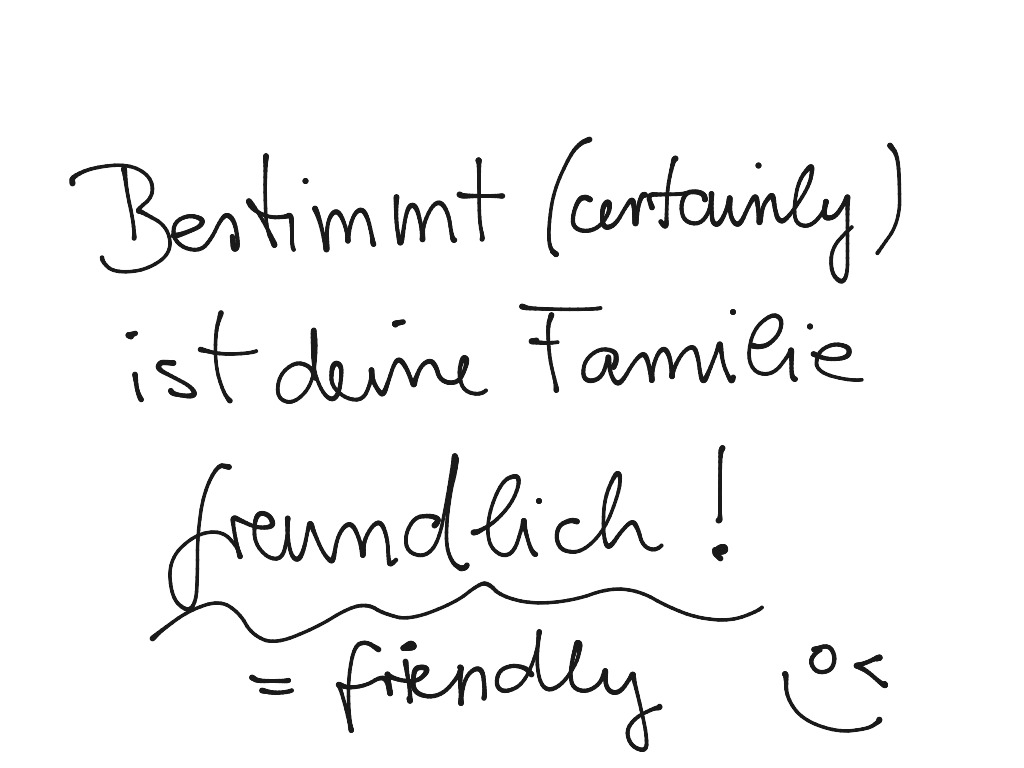 Bestimmt (certainly)
ist deine Familie
freundlich!
= friendly